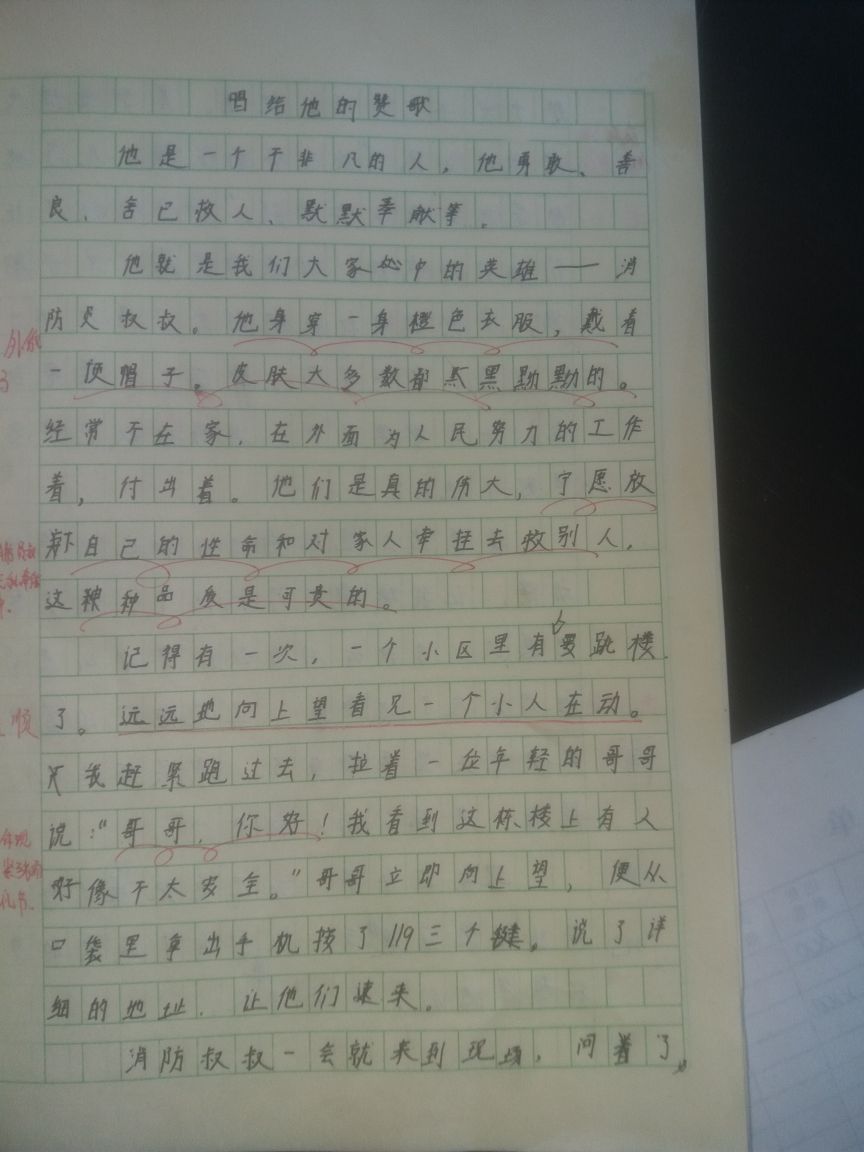 唱给他的赞歌
他是一个干非凡的人，他勇敢、善
良、舍己救人、默默奉献等。
他就是我们大家心中的英雄——消
防员叔叔。他身穿一身橙色衣服，戴着
一顶帽子。皮肤大多数都黑黝黝的。
经常不在家，在外面为人民努力的工作
着，付出着。他们是真的伟大，宁愿放
下自己的性命和对家人牵挂去救别人，
这种品质是可贵的。
记得有一次，一个小区里有要跳楼
了。远远地向上望看见一个小人在动。
我赶紧跑过去，拉着一位年轻的哥哥
说："哥哥，你好！我看到这栋楼上有人
好像不太安全。"哥哥立即向上望，便从
口袋里拿出手机按了119三个键。说了详
细的地址，让他们速来。
消防叔叔一会就来到现场，问着了
顺